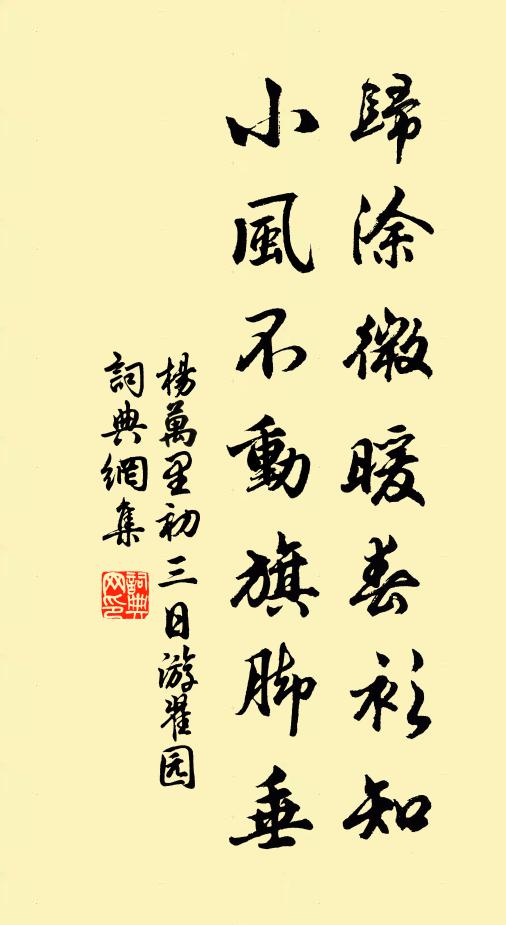 歸涂微暖春衫知
小風不動旗脚垂
楊萬里初三日游翟园
詞典網集
詞典网印